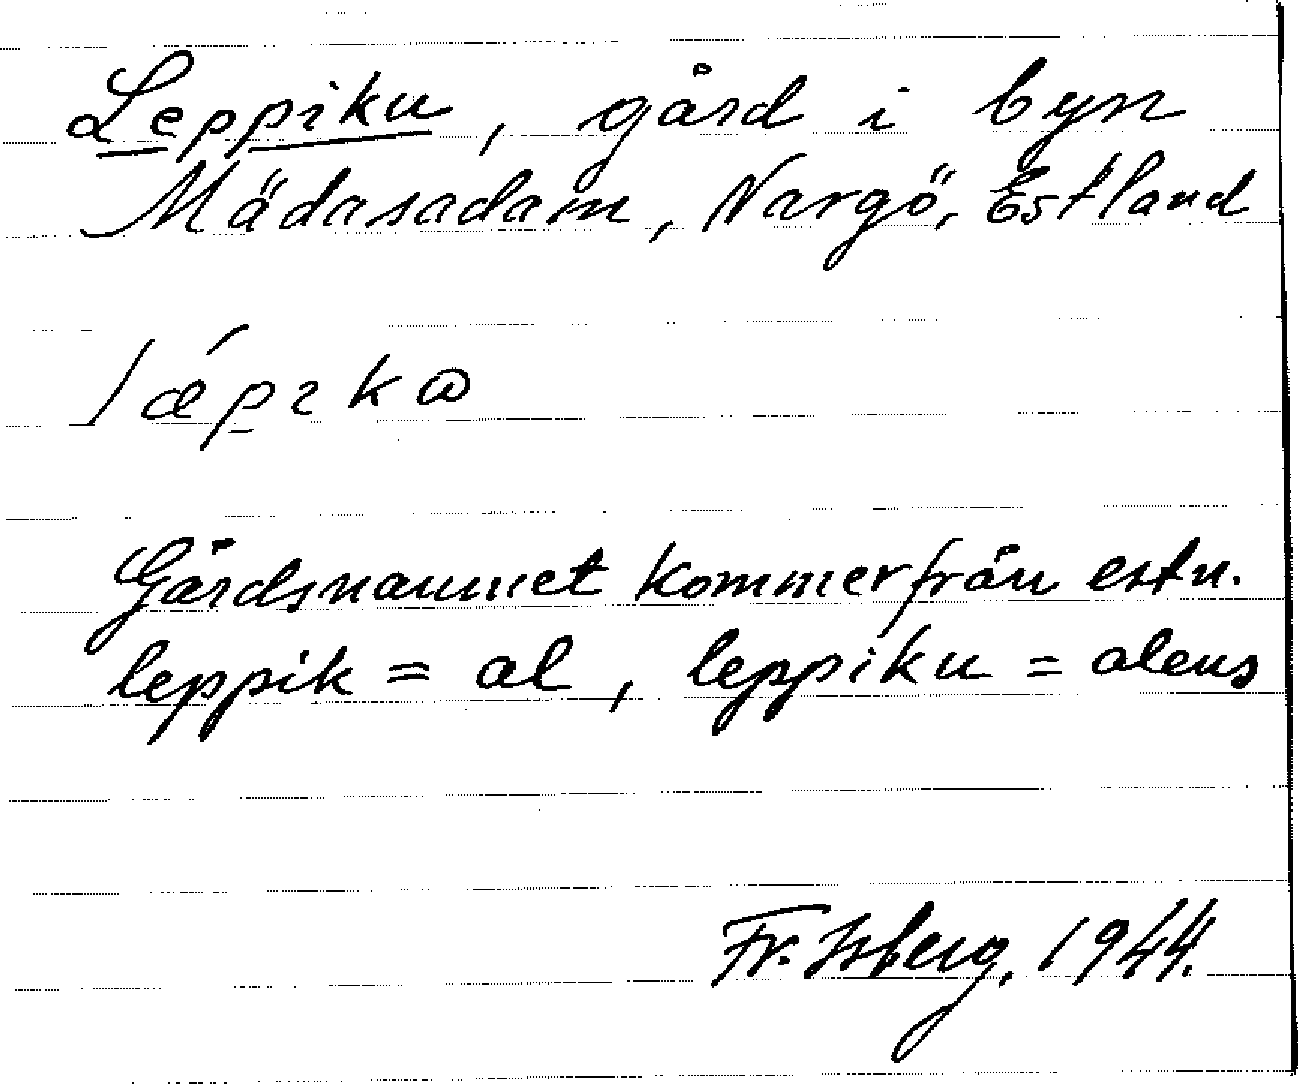 Leppiku, gård i byn
Mädasadam, Nargö, Estland
Gårdsnamnet kommer från estn.
leppik = al, leppiku = alens
Fr. Isberg, 1944.